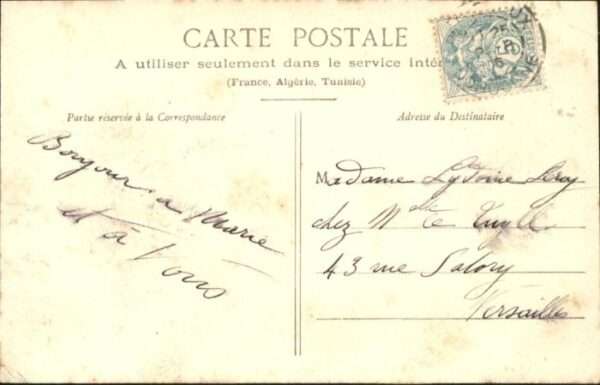 CARTE POSTALE
A utiliser seulement dans le service inté
(France, Algérie, Tunisie)
Partie réservée à la Correspondance
Adresse du Destinataire
Bonjour à Marie
et à Vous
Madame
chez Mlle
43 rue Satory
Versailles